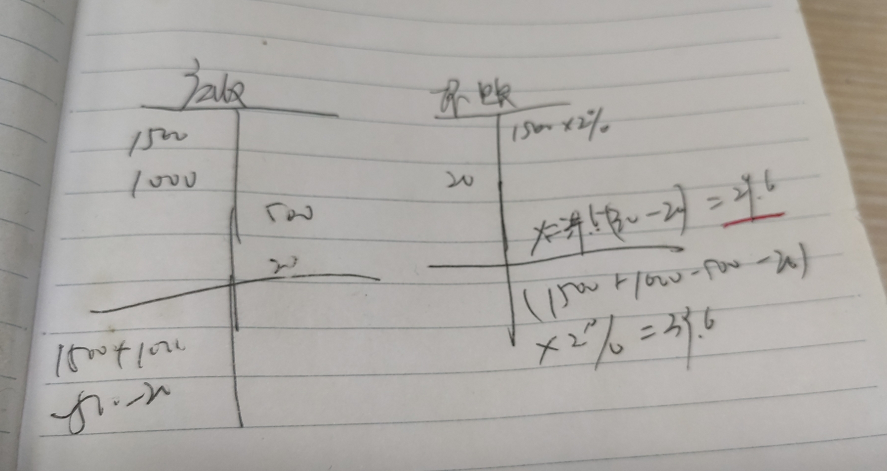 1500
1000
500
20
1500+1000
-500-20
坏账
1500×2%
20
=29.6
(1500+1000-500-20)
×2%=39.6